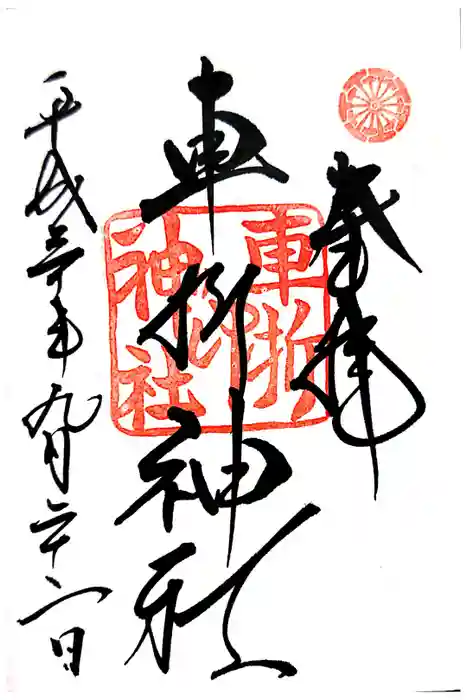 奉拝
車折神社
車折
神社
平成三十年九月二十一日